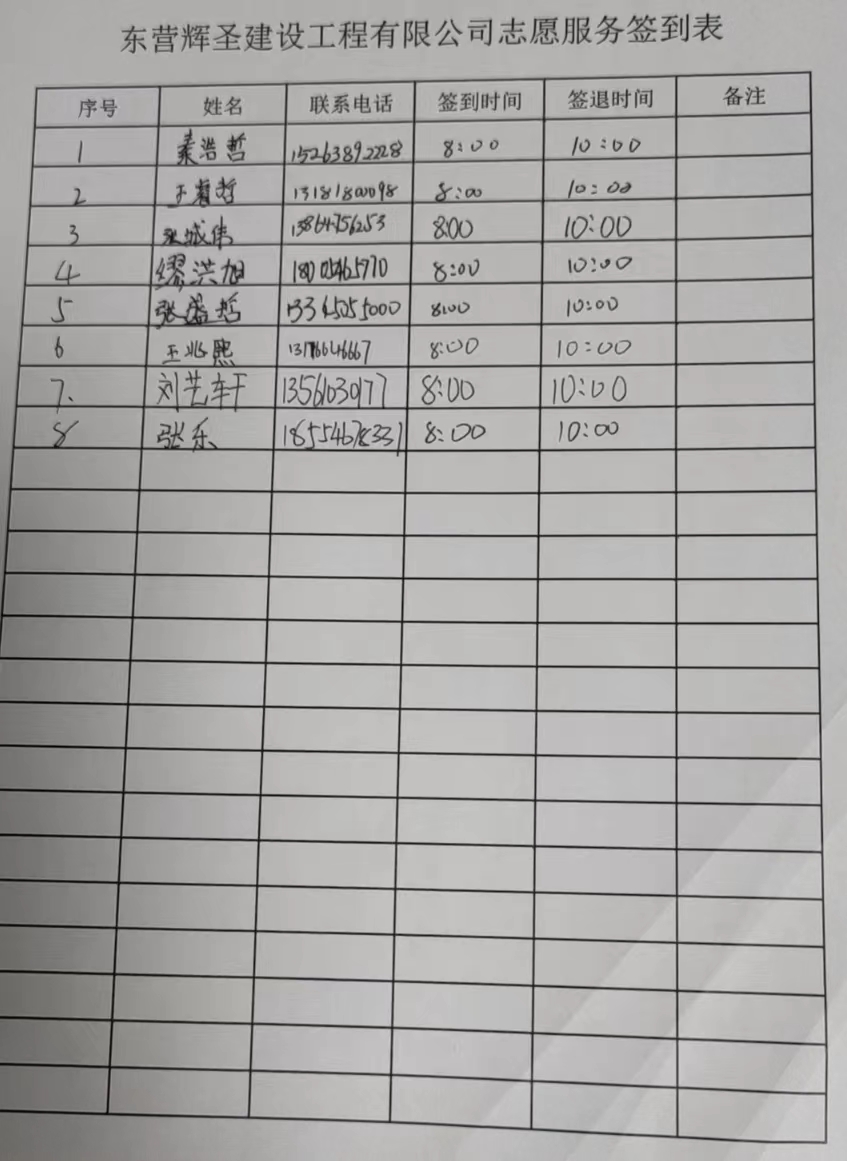 东营辉圣建设工程有限公司志愿服务签到表
序号 姓名 联系电话 签到时间 签退时间 备注
1 秦浩哲 15263892228 8:00 10:00
2 王睿哲 13181800098 8:00 10:00
3 张城伟 13864756253 8:00 10:00
4 缪洪旭 18005465770 8:00 10:00
5 张盛哲 8:00 10:00
6 王兆熙 8:00 10:00
7. 刘艺轩 8:00 10:00
8 张乐 8:00 10:00